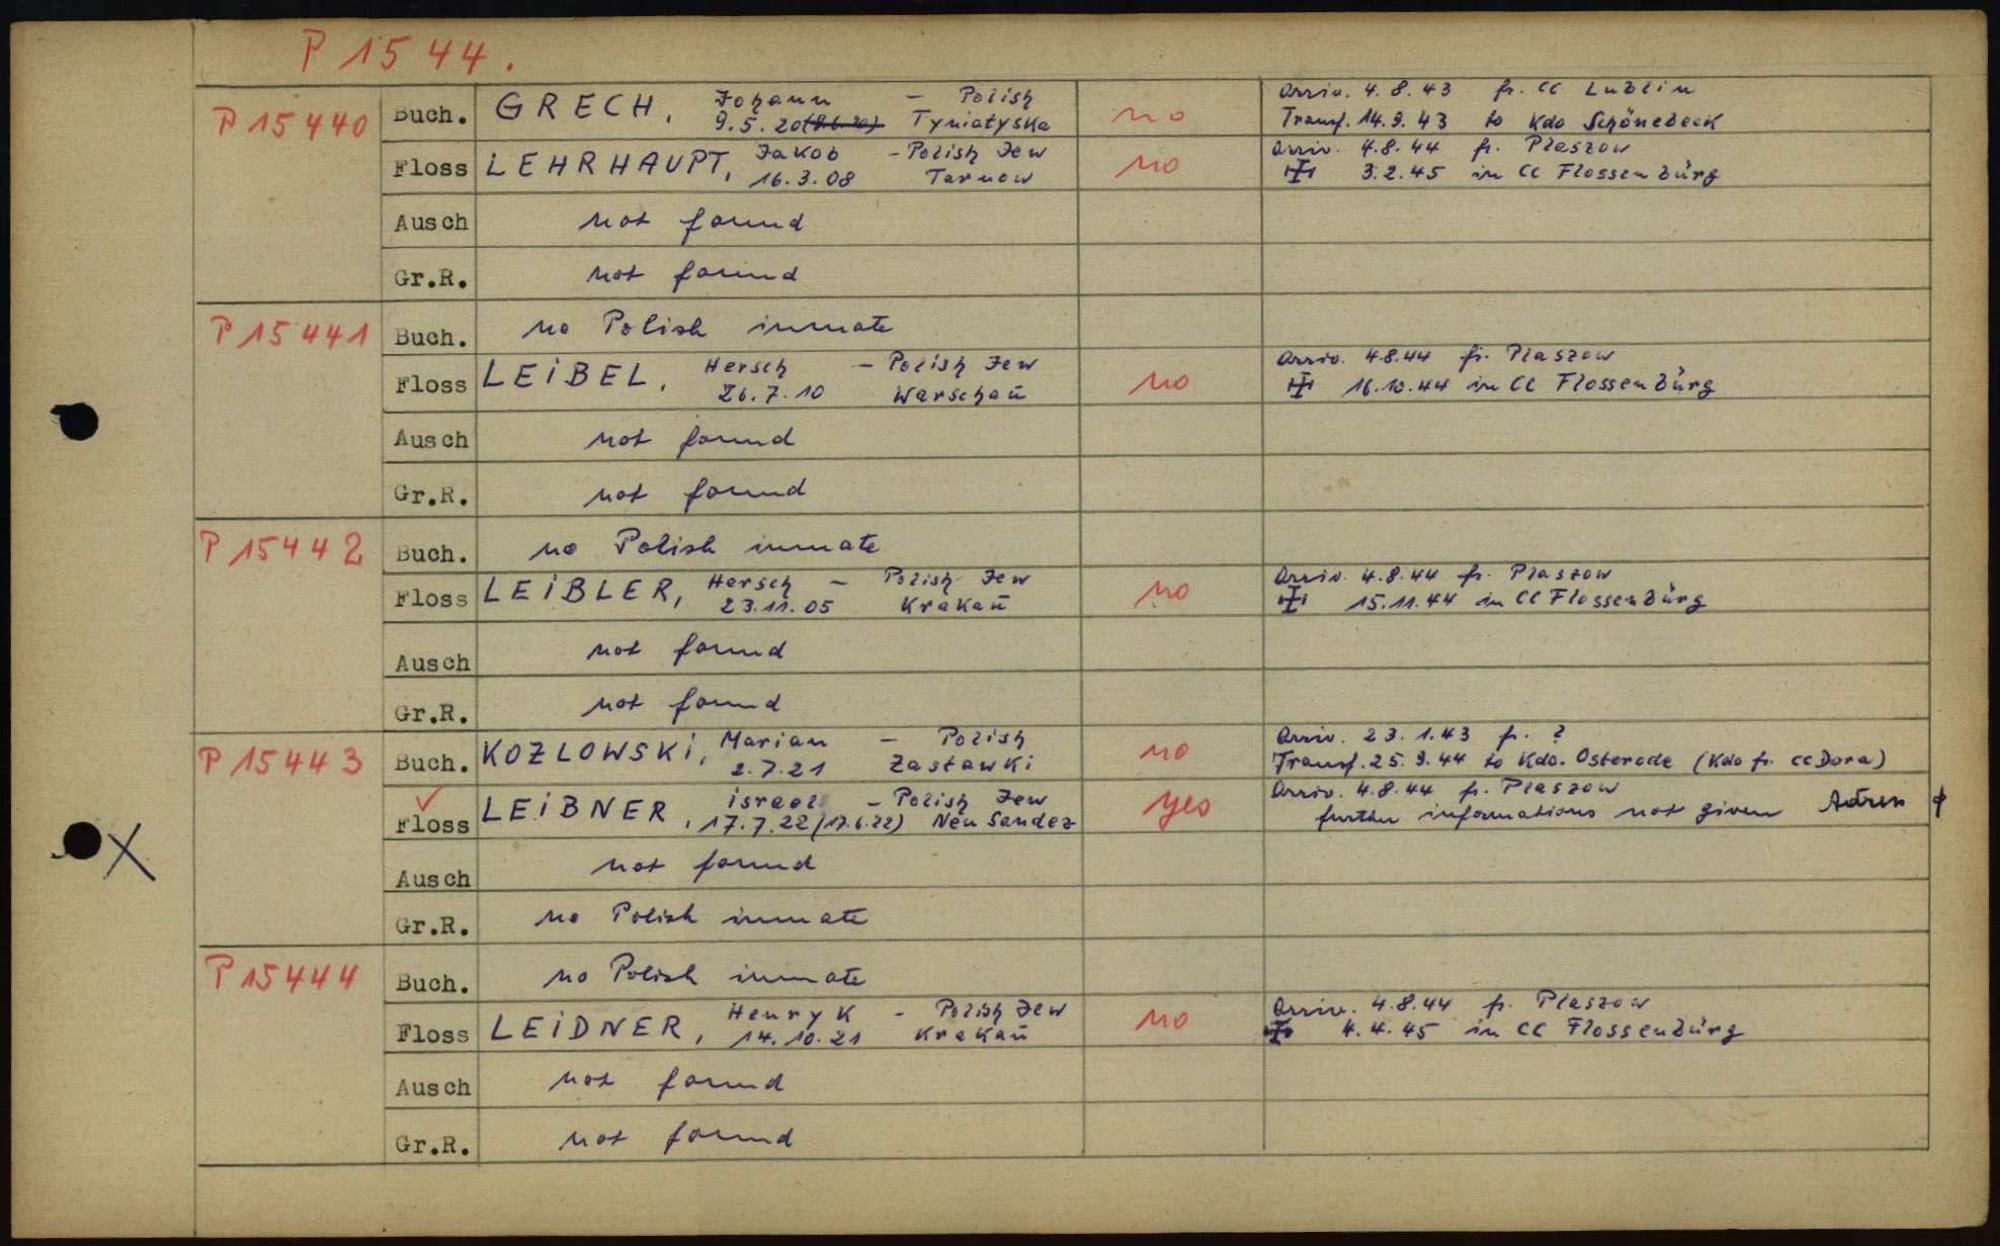 P 1544.
P 15440
Buch. GRECH, Johann — Polish no Arriv. 4.8.43 fr. CC Lublin
9.5.20 (9.6.20) Tyniatyska Transf. 14.9.43 to Kdo Schönebeck
Floss LEHRHAUPT, Jakob - Polish Jew no Arriv. 4.8.44 fr. Plaszow
16.3.08 Tarnow 3.2.45 in CC Flossenbürg
Ausch not found
Gr.R. not found
P 15441
Buch. no Polish inmate
Floss LEIBEL, Hersch — Polish Jew no Arriv. 4.8.44 fr. Plaszow
26.7.10 Warschau 16.10.44 in CC Flossenbürg
Ausch not found
Gr.R. not found
P 15442
Buch. no Polish inmate
Floss LEIBLER, Hersch — Polish Jew no Arriv. 4.8.44 fr. Plaszow
23.11.05 Krakau 15.11.44 in CC Flossenbürg
Ausch not found
Gr.R. not found
P 15443
Buch. KOZLOWSKI, Marian — Polish no Arriv. 23.1.43 fr. ?
2.7.21 Zastawki Transf. 25.9.44 to Kdo. Osterode (Kdo fr. CC Dora)
Floss LEIBNER, Israel — Polish Jew yes Arriv. 4.8.44 fr. Plaszow
17.7.22 (17.6.22) Neu Sandez further informations not given
Ausch not found
Gr.R. no Polish inmate
P 15444
Buch. no Polish inmate
Floss LEIDNER, Henryk - Polish Jew no Arriv. 4.8.44 fr. Plaszow
14.10.21 Krakau 4.4.45 in CC Flossenbürg
Ausch not found
Gr.R. not found